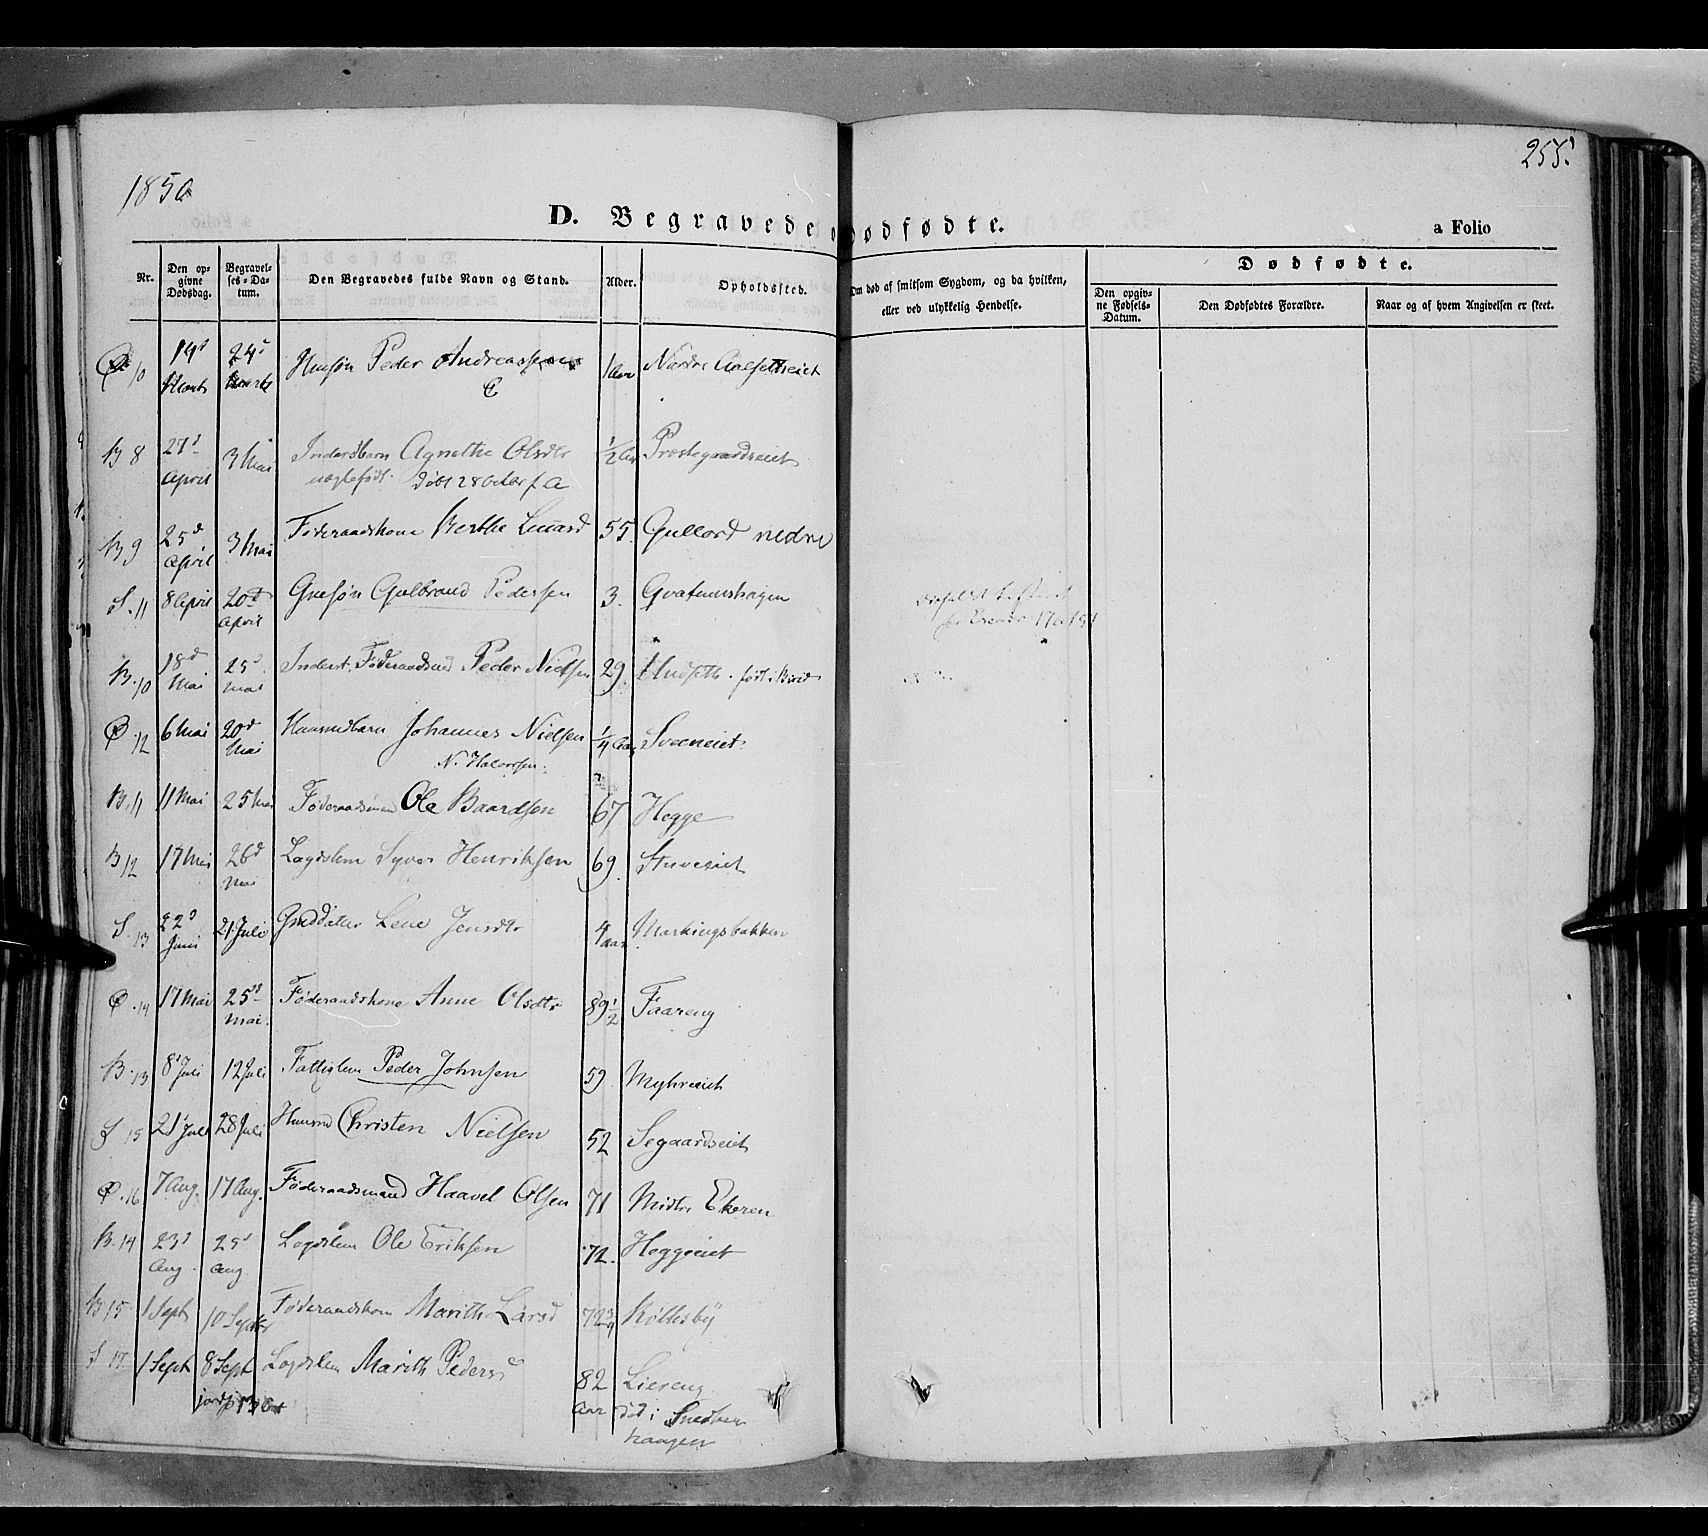 1850
255.
D. Begravede o Dødfødte.
a Folio
Nr.
Den opgivne Dødsdag.
Begravelses-Datum.
Den Begravedes fulde Navn og Stand.
Alder.
Opholdssted.
Om død af smitsom Sygdom, og da hvilken, eller ved ulykkelig Hendelse.
Dødfødte.
Den opgivne Fødsels-Datum.
Den Dødfødtes Forældre.
Naar og af hvem Angivelsen er skeet.
Ø 10 19d Marts 24d Marts Huusøn Peder Andreassen 1 Aar Nordre
B 8 27d April 3 Mai Inderstbarn Agnethe Olsdtr ½ Aar Præstegaardseiet
uægtefødt. døbt 28 October f A
B 9 25d April 3 Mai Føderaadskone Berthe 55. Gullord nedre
S. 11 8 April 20d April Guesøn Gulbrand Pedersen 3.
B. 10 18d Mai 25d Mai Inderst. Føderaadsmd Peder Nielsen 29 Hudseth. født i Birid
Ø. 12 6 Mai 20d Mai Huusmdbarn Johannes Nielsen ¼ Aar Sveeneiet
N. Halvorsen.
B. 11 11 Mai 25 Mai Føderaadsmand Ole Baardsen 67 Hegge
B 12 17 Mai 26d Mai Lægdslem Syver Henriksen 69. Stuveeiet
S. 13 22d Juni 21 Juli Gmddatter Lene Jensdtr 4 aar Markingsbakken
Ø. 14 17 Mai 25d Mai. Føderaadskone Anne Olsdtr 89½ Faareng
B. 13 8 Juli 12 Juli Fattiglem Peder Johnsen 59 Myhreeiet
S 15 21 Juli 28 Juli Huusmd Christen Nielsen 52 Segaardseiet
Ø. 16 7 Aug. 17 Aug. Føderaadsmand Haavel Olsen 71 Midtre Ekeren
B. 14 23d Aug. 25d Aug Lægdslem Ole Eriksen 72. Heggeeiet
B 15. 1 Sept 10 Septbr Føderaadskone Marith Larsd 72¾ Röblesby
S 17. 1 Sept 8 Sept Lægdslem Marith Pedersd 82 Aar Liereng
død i
haagen